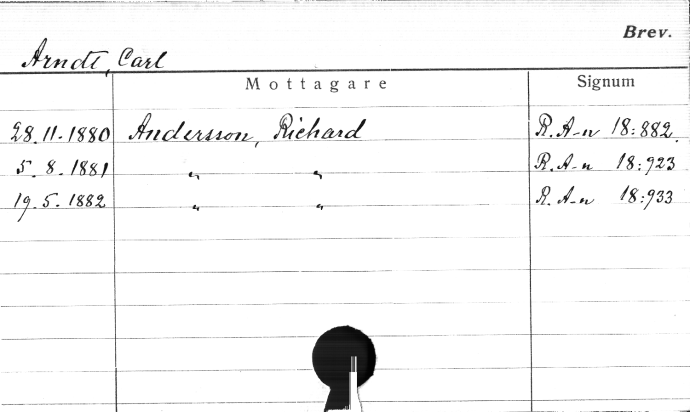 Brev.
Arndt, Carl
Mottagare Signum
28.11.1880 Andersson, Richard R. A-n 18:882.
5. 8. 1881 " " R. A-n 18:923
19. 5. 1882 " " R. A-n 18:933